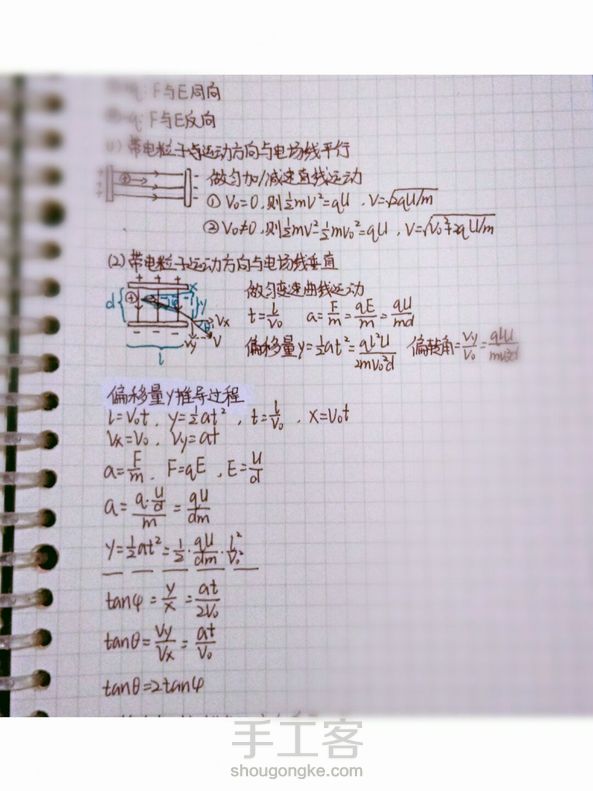 q: F与E同向
q: F与E反向
(1) 带电粒子运动方向与电场线平行
做匀加/减速直线运动
① V₀=0, 则½mV²=qU, V=√2qU/m
② V₀≠0, 则½mV²-½mV₀²=qU, V=√V₀²+2qU/m
(2) 带电粒子运动方向与电场线垂直
做匀变速曲线运动
t=l/V₀ a=F/m=qE/m=qU/md
偏移量y=½at²=ql²U/2mV₀²d 偏转角=Vy/V₀=qlU/mV₀²d
+ + +
d
x
y
Vx
Vy
V
l
偏移量y推导过程
l=V₀t, y=½at², t=l/V₀, x=V₀t
Vx=V₀, Vy=at
a=F/m, F=qE, E=U/d
a=q·U/d/m=qU/dm
y=½at²=½·qU/dm·l²/V₀²
tanφ=y/x=at/2V₀
tanθ=Vy/Vx=at/V₀
tanθ=2tanφ
手工客
shougongke.com